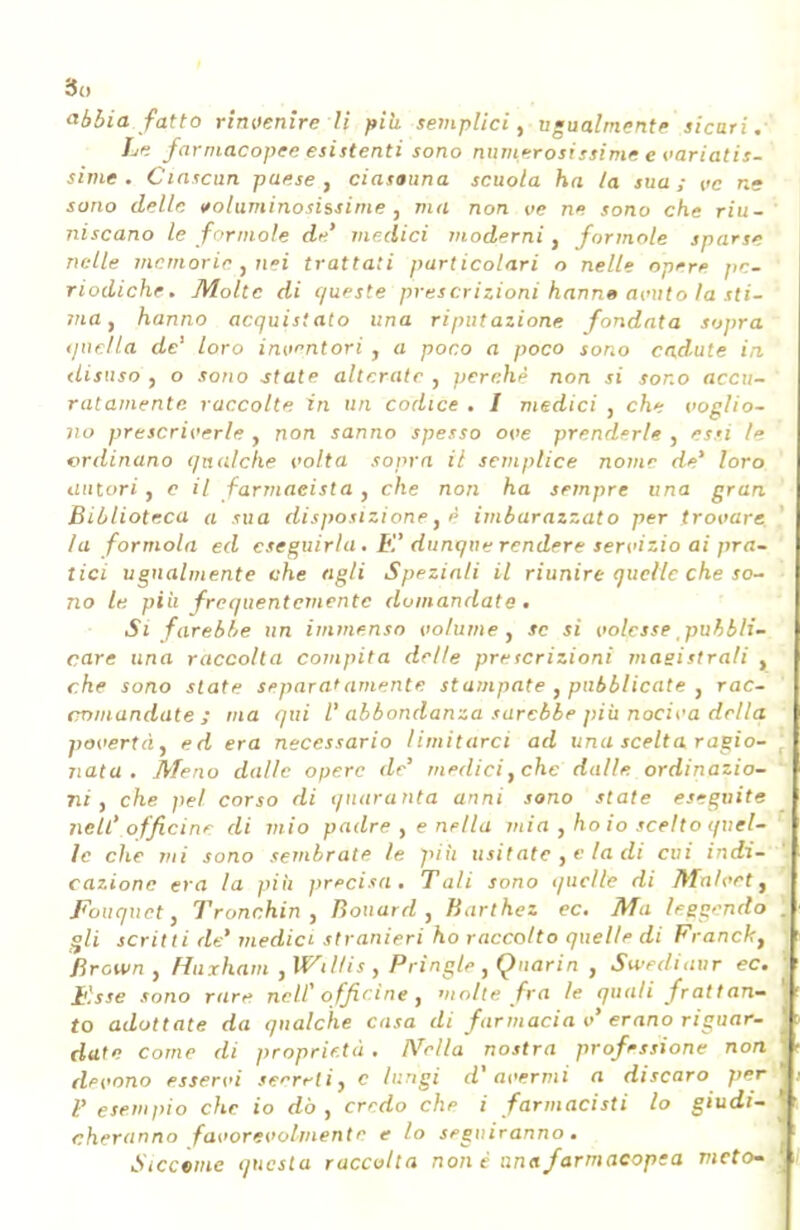 30
abbia fatto rinvenire li più semplici, ugualmente sicuri.
Le farmacopee esistenti sono numerosissime e variatis-
sime. Ciascun paese, ciascuna scuola ha la sua; ve ne
sono delle voluminosissime, ma non ve ne sono che riu-
niscano le formole de' medici moderni, formole sparse
nelle memorie, nei trattati particolari o nelle opere pe-
riodiche. Molte di queste prescrizioni hanno avuto la sti-
ma, hanno acquistato una riputazione fondata sopra
quella de' loro inventori, a poco a poco sono cadute in
disuso, o sono state alterate, perchè non si sono accu-
ratamente raccolte in un codice. I medici, che voglio-
no prescriverle, non sanno spesso ove prenderle, essi le
ordinano qualche volta sopra il semplice nome de' loro
autori, e il farmacista, che non ha sempre una gran
Biblioteca a sua disposizione, è imbarazzato per trovare
la formola ed eseguirla. E' dunque rendere servizio ai pra-
tici ugualmente che agli Speziali il riunire quelle che so-
no le più frequentemente domandate.
Si farebbe un immenso volume, se si volesse pubbli-
care una raccolta compita delle prescrizioni magistrali,
che sono state separatamente stampate, pubblicate, rac-
comandate; ma qui l' abbondanza sarebbe più nociva della
povertà, ed era necessario limitarci ad una scelta ragio-
nata. Meno dalle opere de' medici, che dalle ordinazio-
ni, che pel corso di quaranta anni sono state eseguite
nell' officine di mio padre, e nella mia, ho io scelto quel-
le che mi sono sembrate le più usitate, e la di cui indi-
cazione era la più precisa. Tali sono quelle di Maloet,
Fouquet, Tronchin, Bouard, Barthez ec. Ma leggendo
gli scritti de' medici stranieri ho raccolto quelle di Franck,
Brown, Huxham, Willis, Pringle, Quarin, Swediaur ec.
Esse sono rare nell' officine, molte fra le quali frattan-
to adottate da qualche casa di farmacia v' erano riguar-
date come di proprietà. Nella nostra professione non
devono esservi secreti, e lungi d' avermi a discaro per
l' esempio che io dò, credo che i farmacisti lo giudi-
cheranno favorevolmente e lo seguiranno.
Siccome questa raccolta non è una farmacopea meto-